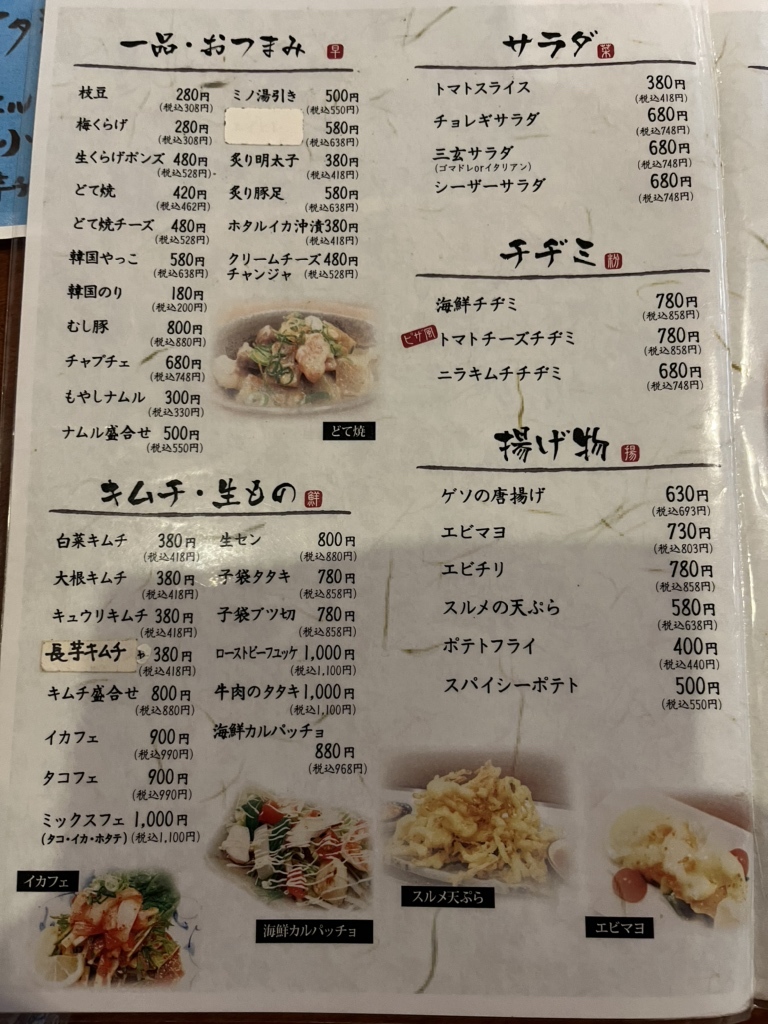 一品・おつまみ 早
枝豆 280円
(税込308円)
梅くらげ 280円
(税込308円)
生くらげポンズ 480円
(税込528円)
どて焼 420円
(税込462円)
どて焼チーズ 480円
(税込528円)
韓国やっこ 580円
(税込638円)
韓国のり 180円
(税込200円)
むし豚 800円
(税込880円)
チャプチェ 680円
(税込748円)
もやしナムル 300円
(税込330円)
ナムル盛合せ 500円
(税込550円)
ミノ湯引き 500円
(税込550円)
580円
(税込638円)
炙り明太子 380円
(税込418円)
炙り豚足 580円
(税込638円)
ホタルイカ沖漬 380円
(税込418円)
クリームチーズ 480円
チャンジャ (税込528円)
どて焼
キムチ・生もの 鮮
白菜キムチ 380円
(税込418円)
大根キムチ 380円
(税込418円)
キュウリキムチ 380円
(税込418円)
長芋キムチ 380円
(税込418円)
キムチ盛合せ 800円
(税込880円)
イカフェ 900円
(税込990円)
タコフェ 900円
(税込990円)
ミックスフェ 1,000円
(タコ・イカ・ホタテ) (税込1,100円)
生セン 800円
(税込880円)
子袋タタキ 780円
(税込858円)
子袋ブツ切 780円
(税込858円)
ローストビーフユッケ 1,000円
(税込1,100円)
牛肉のタタキ 1,000円
(税込1,100円)
海鮮カルパッチョ
880円
(税込968円)
イカフェ
海鮮カルパッチョ
サラダ 菜
トマトスライス 380円
(税込418円)
チョレギサラダ 680円
(税込748円)
三玄サラダ 680円
(ゴマドレorイタリアン) (税込748円)
シーザーサラダ 680円
(税込748円)
チヂミ 粉
海鮮チヂミ 780円
(税込858円)
ピザ風 トマトチーズチヂミ 780円
(税込858円)
ニラキムチチヂミ 680円
(税込748円)
揚げ物 揚
ゲソの唐揚げ 630円
(税込693円)
エビマヨ 730円
(税込803円)
エビチリ 780円
(税込858円)
スルメの天ぷら 580円
(税込638円)
ポテトフライ 400円
(税込440円)
スパイシーポテト 500円
(税込550円)
スルメ天ぷら
エビマヨ